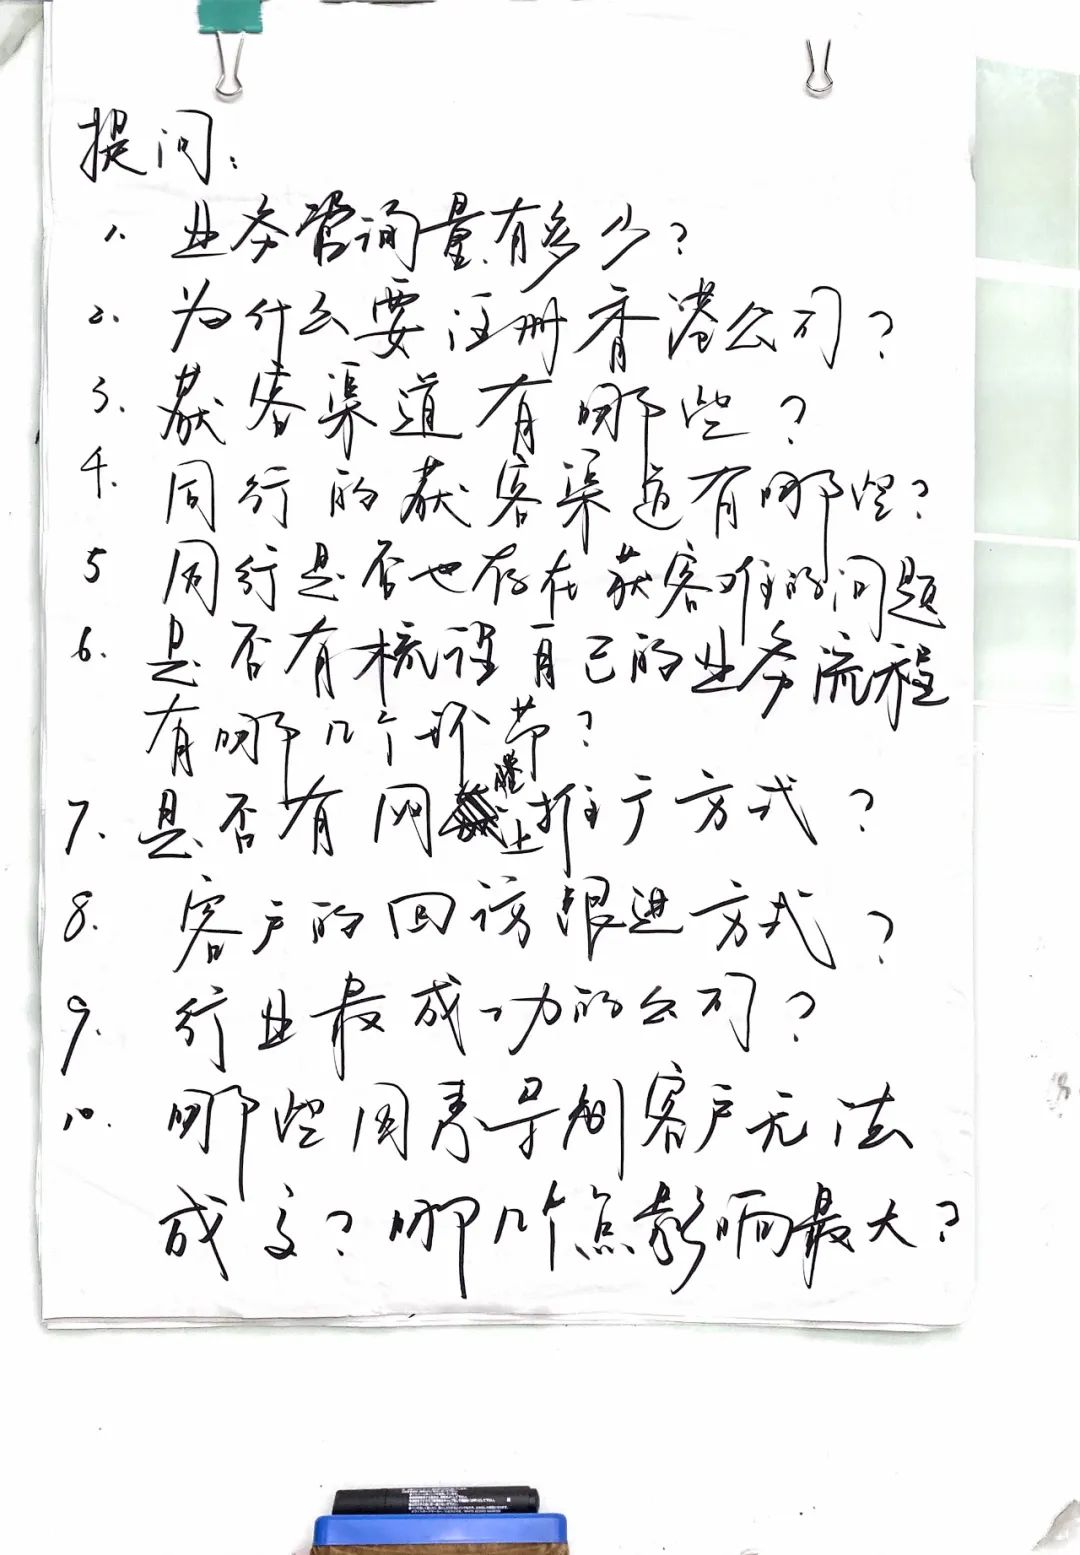 提问：
1. 业务咨询量有多少？
2. 为什么要注册香港公司？
3. 获客渠道有哪些？
4. 同行的获客渠道有哪些？
5 同行是否也存在获客难的问题
6. 是否有梳理自己的业务流程
有哪几个环节？
7. 是否有网上推广方式？
8. 客户的回访跟进方式？
9. 行业最成功的公司？
10. 哪些因素导致客户无法
成交？哪几个点影响最大？